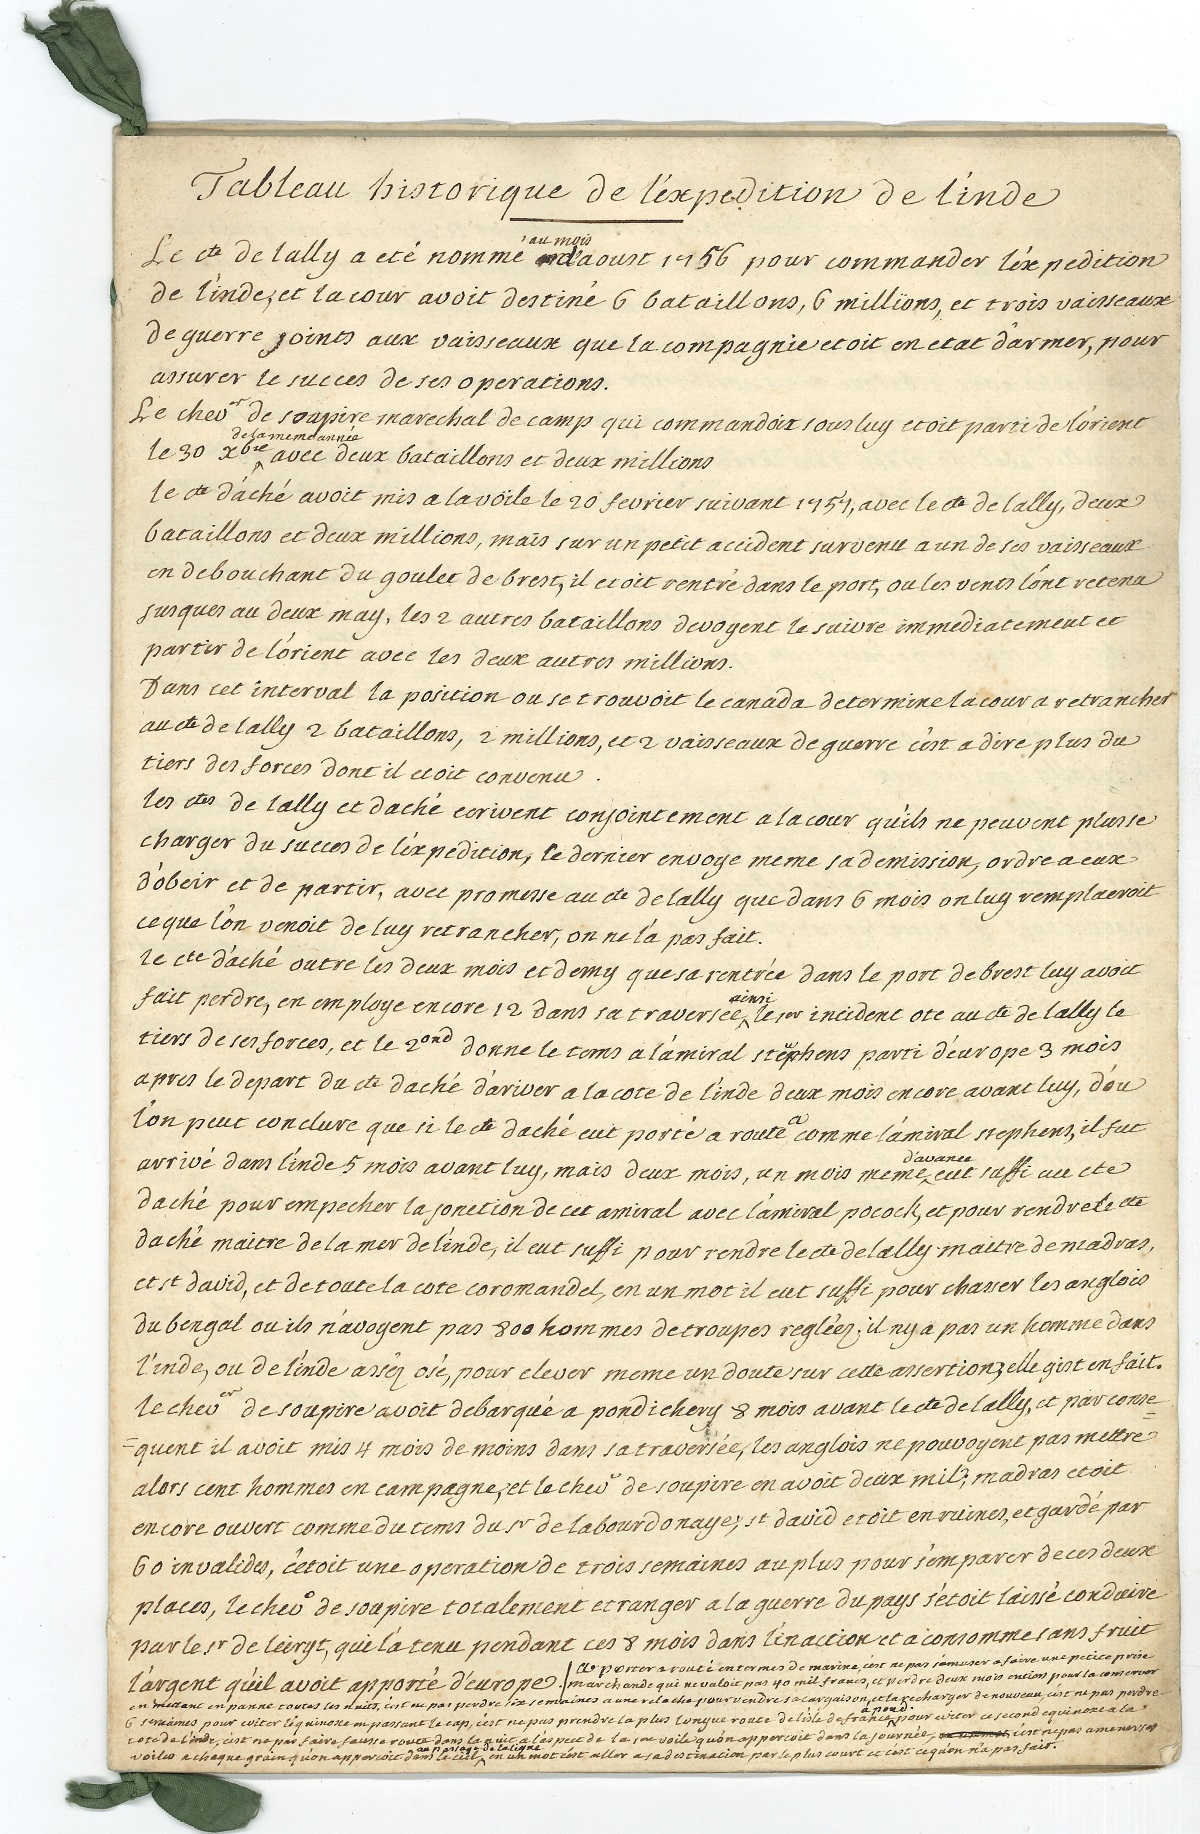 Tableau historique de l'éxpedition de l'inde
Le cte de lally a eté nommé au mois d'aoust 1756 pour commander l'éxpedition
de l'inde, et la cour avoit destiné 6 bataillons, 6 millions, et trois vaisseaux
de guerre joints aux vaisseaux que la compagnie etoit en etat d'armer, pour
assurer le succes de ses operations.
Le chevr de soupire marechal de camp qui commandoit sous luy etoit parti de l'orient
le 30 xbre de la meme année avec deux bataillons et deux millions
le cte d'aché avoit mis a la voile le 20 fevrier suivant 1757, avec le cte de lally, deux
bataillons et deux millions, mais sur un petit accident survenu a un de ses vaisseaux
en debouchant du goulet de brest, il etoit rentré dans le port, ou les vents l'ont retenu
jusques au deux may, les 2 autres bataillons devoyent le suivre immediatement et
partir de l'orient avec les deux autres millions.
Dans cet interval la position ou se trouvoit le canada determine la cour a retrancher
au cte de lally 2 bataillons, 2 millions, et 2 vaisseaux de guerre c'est a dire plus du
tiers des forces dont il etoit convenu.
les ctes de lally et daché ecrivent conjointement a la cour qu'ils ne peuvent plus se
charger du succes de l'éxpedition, le dernier envoye meme sa demission, ordre a eux
d'obeir et de partir, avec promesse au cte de lally que dans 6 mois on luy remplaceroit
ce que l'on venoit de luy retrancher, on ne l'a pas fait.
le cte d'aché outre les deux mois et demy que sa rentrée dans le port de brest luy avoit
fait perdre, en employe encore 12 dans sa traversée, ainsi le 1er incident ote au cte de lally le
tiers de ses forces, et le 2ond donne le tems a l'amiral stephens parti d'europe 3 mois
apres le depart du cte daché d'ariver a la cote de l'inde deux mois encore avant luy, d'ou
l'on peut conclure que si le cte daché eut porté a route a comme l'amiral stephens, il fut
arrivé dans l'inde 5 mois avant luy, mais deux mois, un mois meme d'avance eut suffi au cte
daché pour empecher la jonction de cet amiral avec l'amiral pocock, et pour rendre le cte
daché maitre de la mer de l'inde, il eut suffi pour rendre le cte de lally maitre de madras,
et st david, et de toute la cote coromandel, en un mot il eut suffi pour chasser les anglois
du bengal ou ils n'avoyent pas 800 hommes de troupes reglées; il ny a pas un homme dans
l'inde, ou de l'inde asséz osé, pour elever meme un doute sur cette assertion, elle gist en fait.
le chevr de soupire avoit debarqué a pondichery 8 mois avant le cte de lally, et par conse=
=quent il avoit mis 4 mois de moins dans sa traversée, les anglois ne pouvoyent pas mettre
alors cent hommes en campagne, et le chevr de soupire en avoit deux mil; madras etoit
encore ouvert comme du tems du sr de labourdonaye; st david etoit en ruines, et gardé par
60 invalides, c'étoit une operation de trois semaines au plus pour s'emparer de ces deux
places, le chevr de soupire totalement etranger a la guerre du pays s'étoit laissé conduire
par le sr de leiryt, qui l'a tenu pendant ces 8 mois dans l'inaction et a consommé sans fruit
l'argent qu'il avoit apporté d'europe.
a porter a route en termes de marine, c'est ne pas s'amuser a faire une petite prise
marchande qui ne valoit pas 40 mil francs, et perdre deux mois entiers pour la conserver
en mettant en panne toutes les nuits, c'est ne pas perdre six semaines a une relache pour vendre sa cargaison, et la recharger de nouveau, c'est ne pas perdre
6 semaines pour eviter l'équinoxe en passant le cap, c'est ne pas prendre la plus longue route de l'isle de france a pondy pour eviter ce second equinoxe a la
cote de l'inde, c'est ne pas faire fausse route dans la nuit a l'aspect de la 1ere voile qu'on appercoit dans la journée, c'est ne pas amener ses
voiles a chaque grain qu'on appercoit dans le ciel au passage de la ligne, en un mot c'est aller a sa destination par le plus court et c'est ce qu'on n'a pas fait.